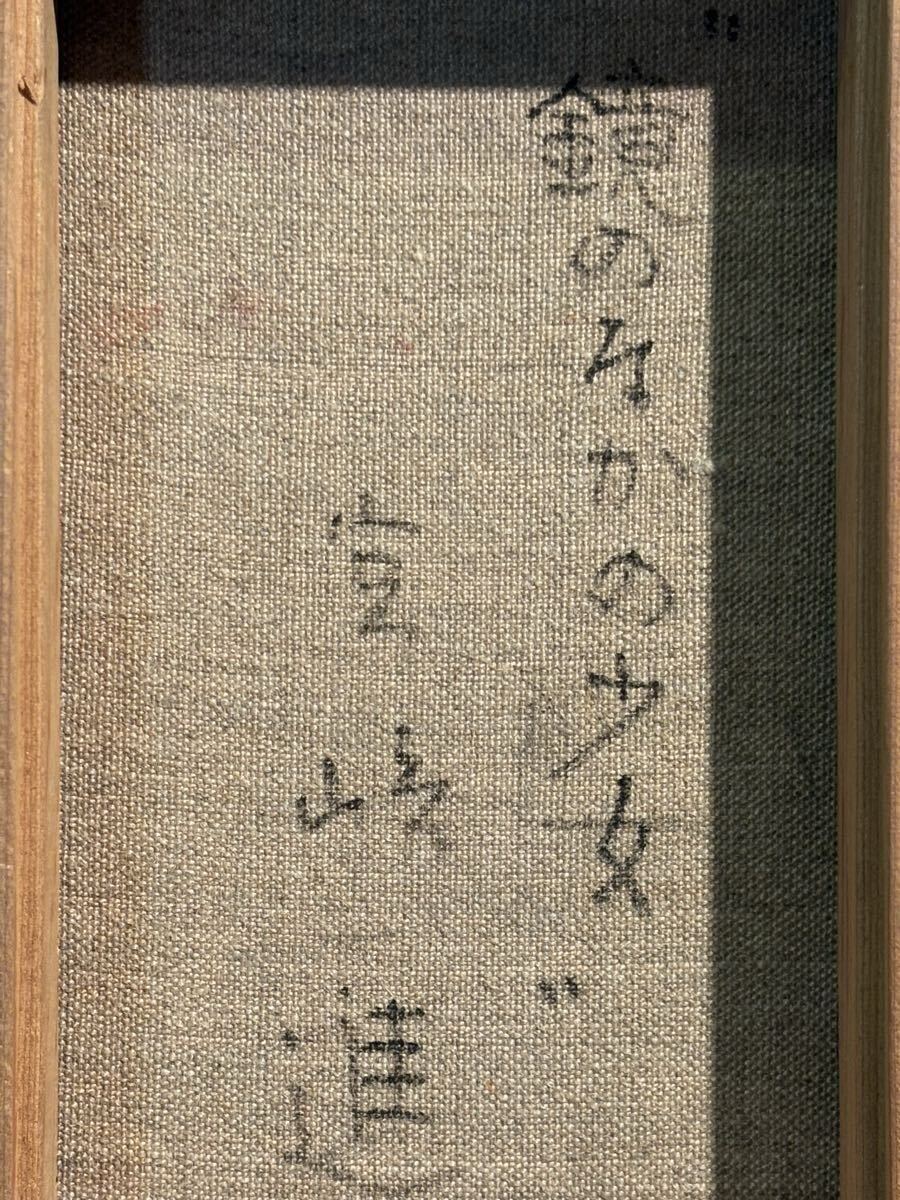 "鏡のなかの少女"
進